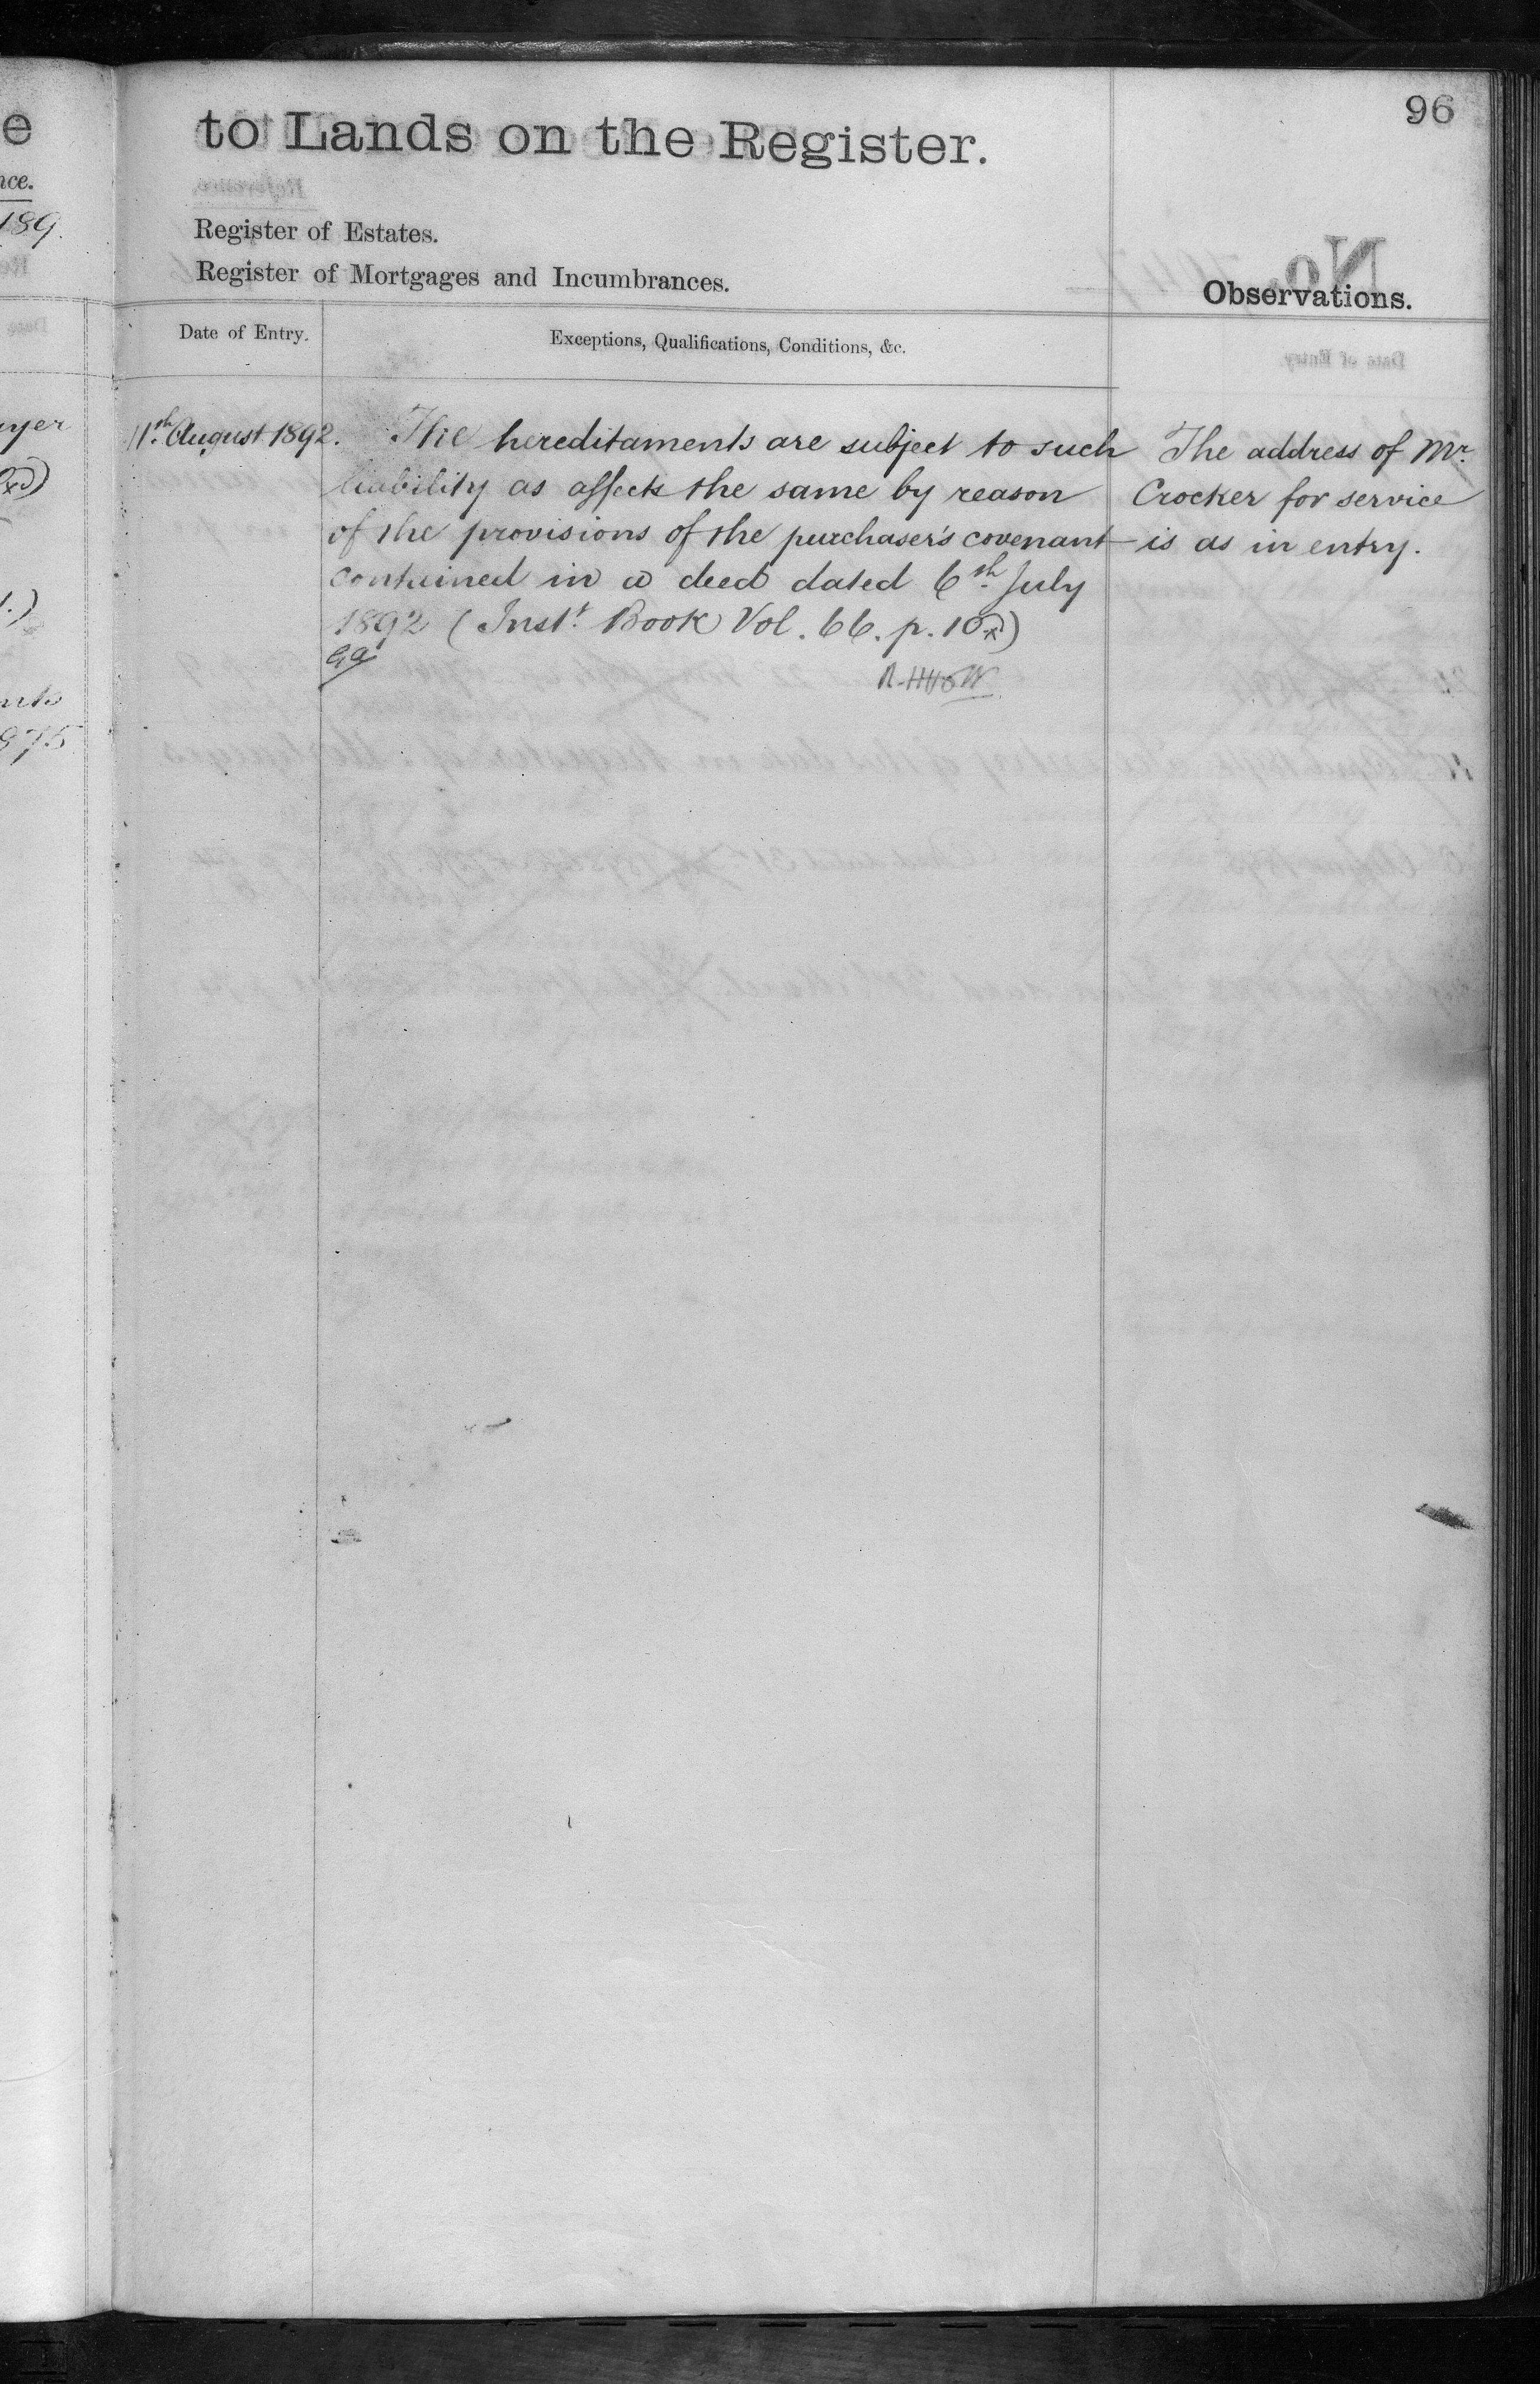 96
to Lands on the Register.
Register of Estates.
Register of Mortgages and Incumbrances.
Observations.
Date of Entry.
Exceptions, Qualifications, Conditions, &c.
11th August 1892.
The hereditaments are subject to such
liability as affects the same by reason
of the provisions of the purchaser's covenant
contained in a deed dated 6th July
1892 (Inst. Book Vol. 66. p. 10
The address of Mr.
Crocker for service
is as in entry.
e
nce.
189.
yer
nts
875